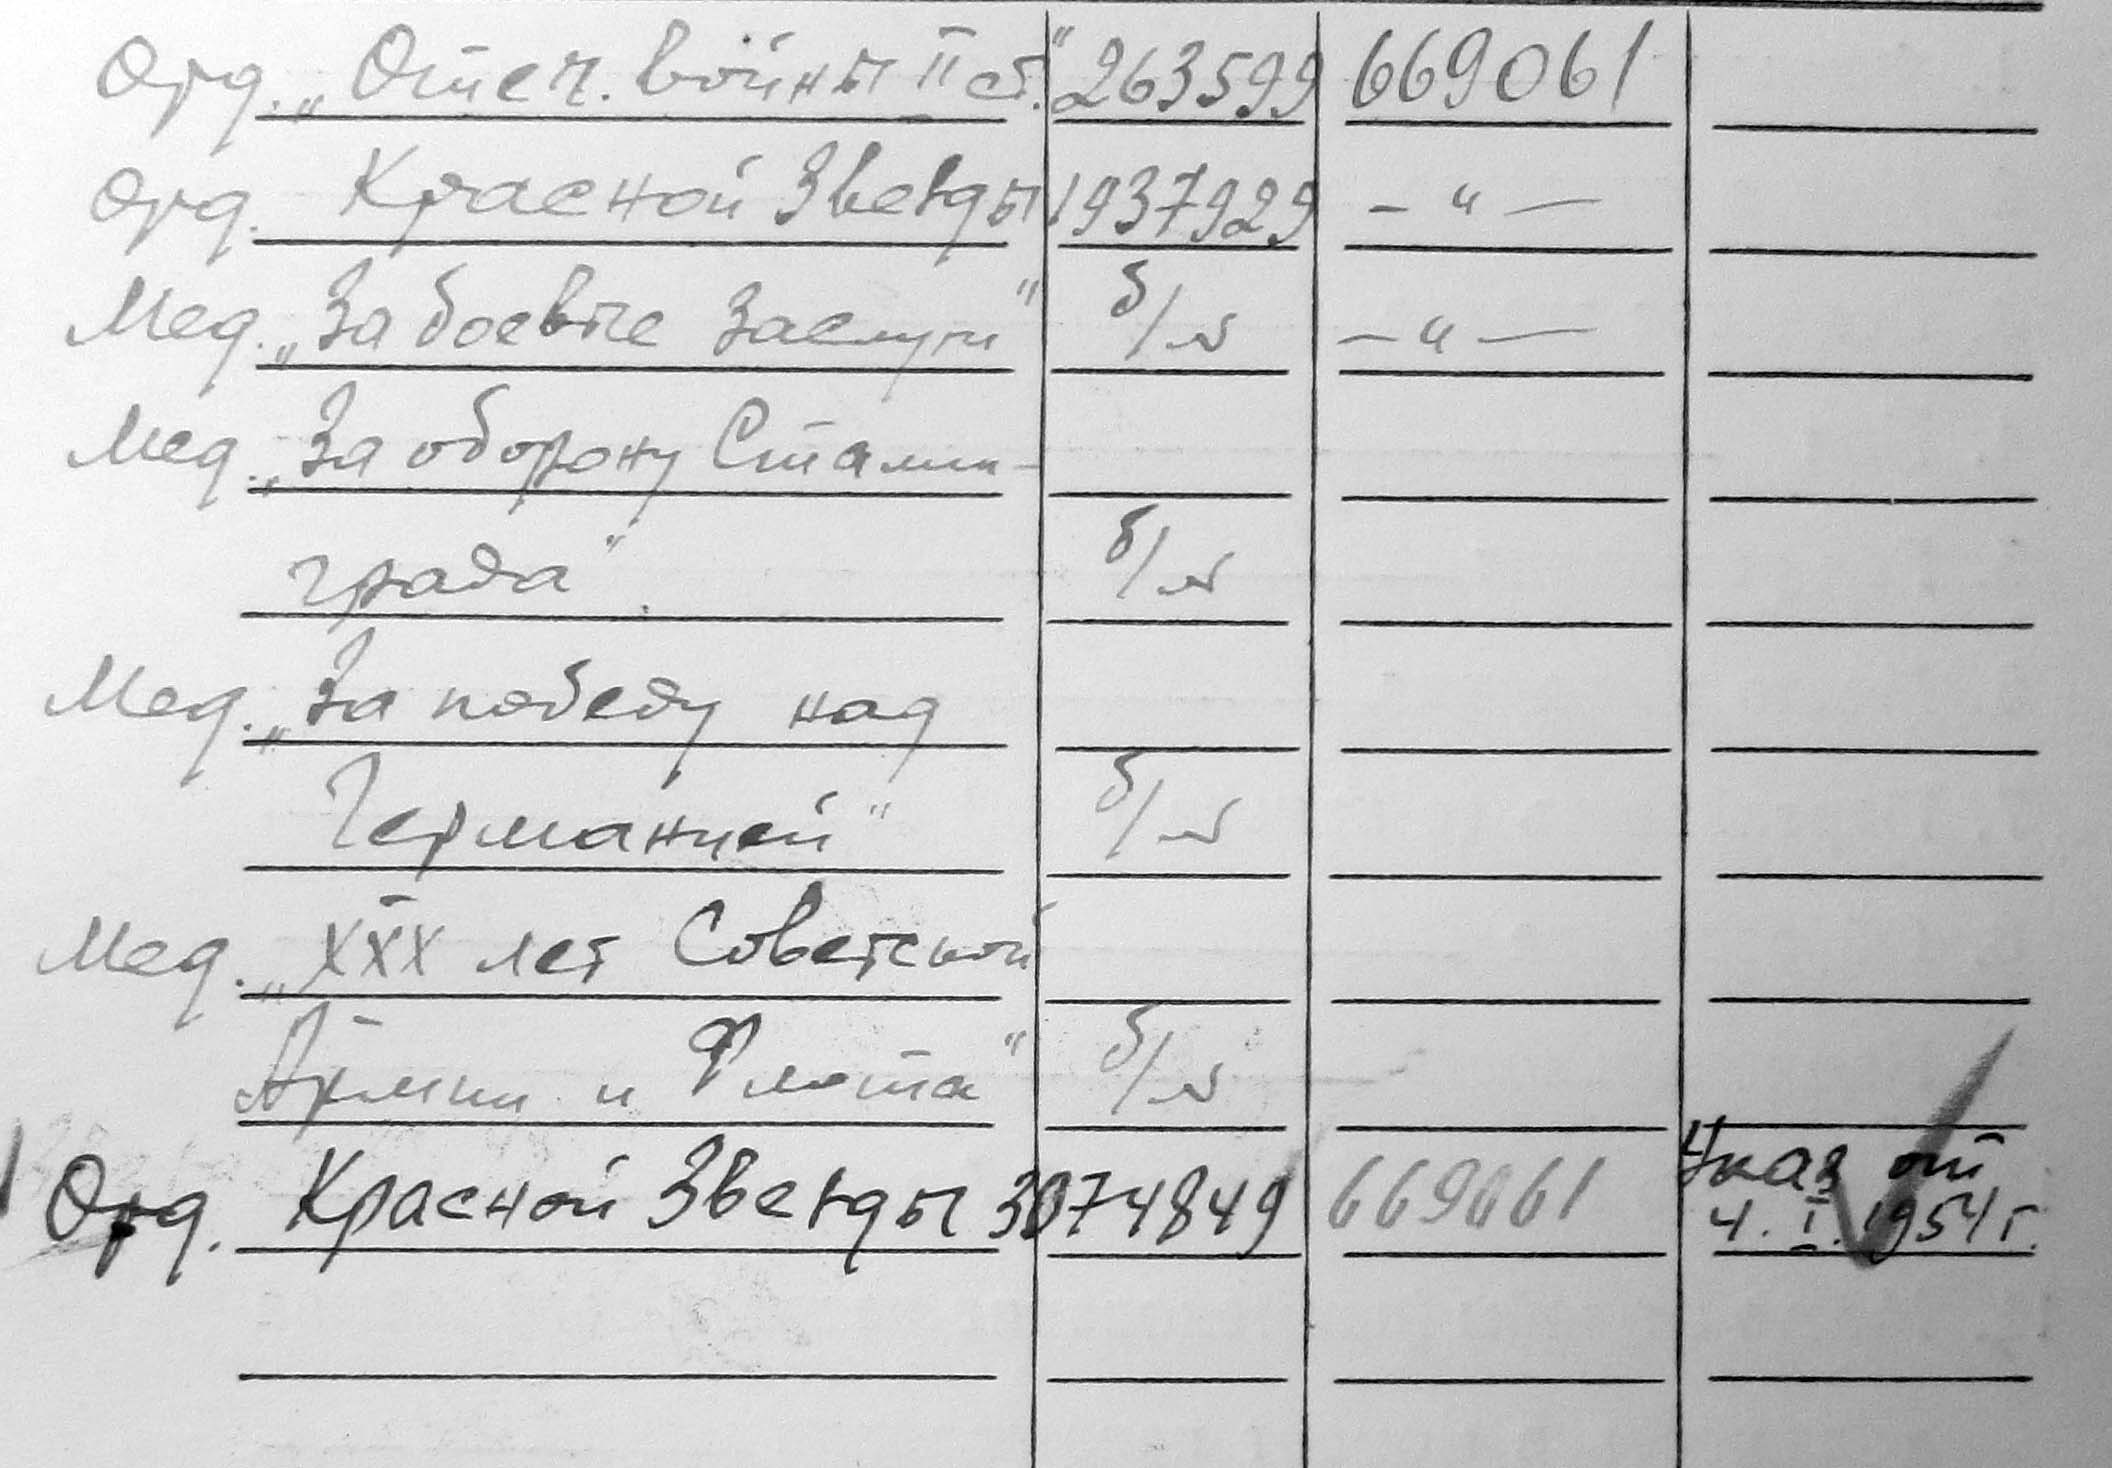 Орд. „Отеч. Войны II ст." 263599 669061
Орд. Красной Звезды 1937929 — " —
Мед. „За боевые заслуги" б/№ — " —
Мед. „За оборону Сталин-
града". б/№
Мед. „За победу над
Германией" б/№
Мед. „XXX лет Советской
Армии и Флота" б/№
Орд. Красной Звезды 3074849 669061 Указ от
4.I.1954 г.